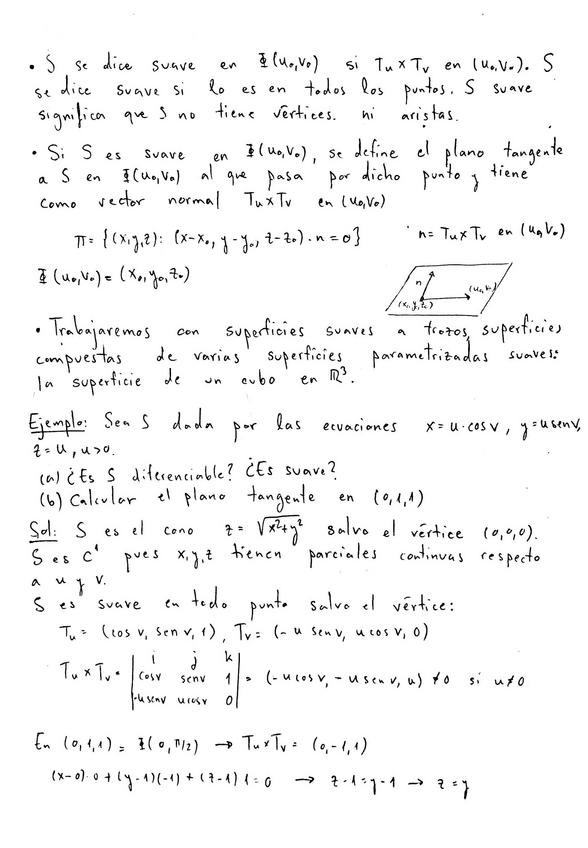 • S se dice suave en Φ(u₀,v₀) si Tu×Tv en (u₀,v₀). S
se dice suave si lo es en todos los puntos. S suave
significa que S no tiene vértices. ni aristas.
• Si S es suave en Φ(u₀,v₀), se define el plano tangente
a S en Φ(u₀,v₀) al que pasa por dicho punto y tiene
como vector normal Tu×Tv en (u₀,v₀)
π = {(x,y,z): (x-x₀, y-y₀, z-z₀)·n=0} n= Tu×Tv en (u₀,v₀)
Φ(u₀,v₀) = (x₀,y₀,z₀)
n
(u₀,v₀)
(x₀,y₀,z₀)
• Trabajaremos con superficies suaves a trozos, superficies
compuestas de varias superficies parametrizadas suaves:
la superficie de un cubo en ℝ³.
Ejemplo: Sea S dada por las ecuaciones x=u·cosv, y=usenv,
z=u, u>0.
(a) ¿Es S diferenciable? ¿Es suave?
(b) Calcular el plano tangente en (0,1,1)
Sol: S es el cono z=√x²+y² salvo el vértice (0,0,0).
S es C¹ pues x,y,z tienen parciales continuas respecto
a u y v.
S es suave en todo punto salvo el vértice:
Tu = (cos v, sen v, 1), Tv = (-u senv, u cosv, 0)
i j k
Tu×Tv = | cosv senv 1 | = (-u cosv, -u senv, u) ≠0 si u≠0
-usenv ucosv 0
En (0,1,1) = Φ(0,π/2) → Tu×Tv = (0,-1,1)
(x-0)·0+(y-1)(-1)+(z-1)1=0 → z-1=y-1 → z=y